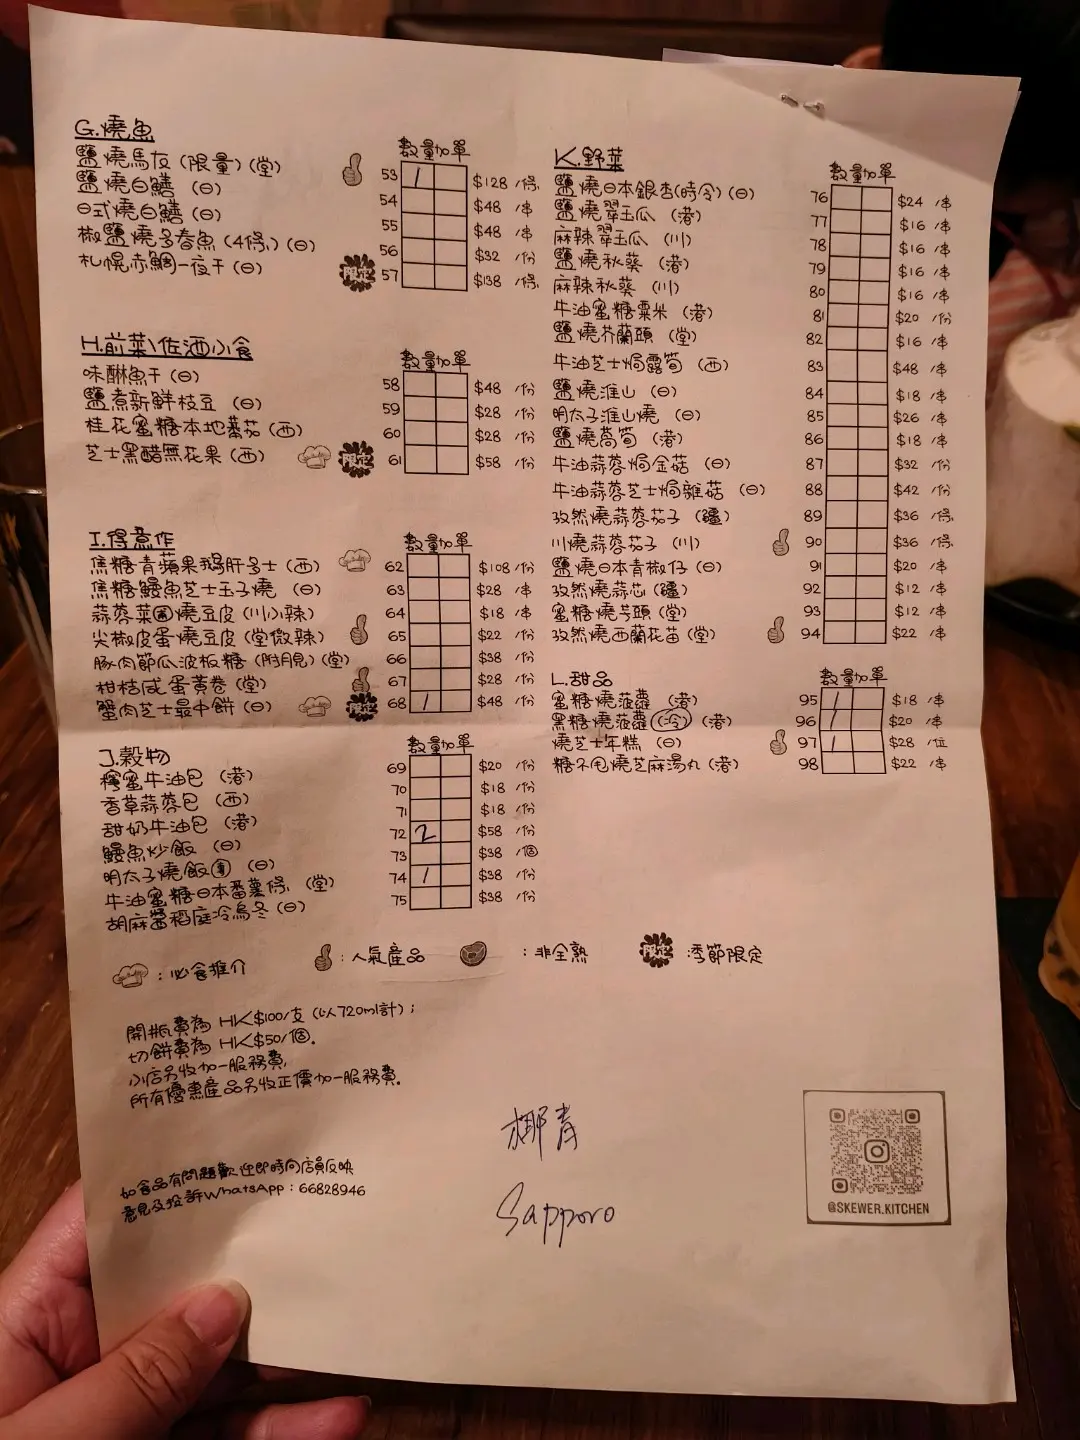 G.燒魚
數量加單
鹽燒馬友（限量）（堂） 53 1 $128 /條
鹽燒白鱔（日） 54 $48 /串
日式燒白鱔（日） 55 $48 /串
椒鹽燒多春魚（4條）（日） 56 $32 /份
札幌赤鯛一夜干（日） 限定 57 $138 /條
H.前菜\佐酒小食
數量加單
味醂魚干（日） 58 $48 /份
鹽煮新鮮枝豆（日） 59 $28 /份
桂花蜜糖本地番茄（西） 60 $28 /份
芝士黑醋無花果（西） 限定 61 $58 /份
I.得意作
數量加單
焦糖青蘋果鵝肝多士（西） 62 $108 /份
焦糖鰻魚芝士玉子燒（日） 63 $28 /串
蒜蓉菜圃燒豆皮（川小辣） 64 $18 /串
尖椒皮蛋燒豆皮（堂微辣） 65 $22 /份
豚肉節瓜波板糖（附月見）（堂） 66 $38 /份
柑桔咸蛋黃卷（堂） 67 $28 /份
蟹肉芝士最中餅（日） 限定 68 1 $48 /份
J.穀物
數量加單
檸蜜牛油包（港） 69 $20 /份
香草蒜蓉包（西） 70 $18 /份
甜奶牛油包（港） 71 $18 /份
鰻魚炒飯（日） 72 2 $58 /份
明太子燒飯 73 $38 /個
牛油蜜糖日本番薯條（堂） 74 1 $38 /份
胡麻醬稻庭冷烏冬（日） 75 $38 /份
K.野菜
數量加單
鹽燒日本銀杏（時令）（日） 76 $24 /串
鹽燒翠玉瓜（港） 77 $16 /串
麻辣翠玉瓜（川） 78 $16 /串
鹽燒秋葵（港） 79 $16 /串
麻辣秋葵（川） 80 $16 /串
牛油蜜糖粟米（港） 81 $20 /份
鹽燒芥蘭頭（堂） 82 $16 /串
牛油芝士焗露筍（西） 83 $48 /串
鹽燒淮山（日） 84 $18 /串
明太子淮山燒（日） 85 $26 /串
鹽燒萵筍（港） 86 $18 /串
牛油蒜蓉焗金菇（日） 87 $32 /份
牛油蒜蓉芝士焗雜菇（日） 88 $42 /份
孜然燒蒜蓉茄子（疆） 89 $36 /條
川燒蒜蓉茄子（川） 90 $36 /條
鹽燒日本青椒仔（日） 91 $20 /串
孜然燒蒜芯（疆） 92 $12 /串
蜜糖燒芋頭（堂） 93 $12 /串
孜然燒西蘭花苗（堂） 94 $22 /串
L.甜品
數量加單
蜜糖燒菠蘿（港） 95 1 $18 /串
黑糖燒菠蘿（冷）（港） 96 1 $20 /串
燒芝士年糕（日） 97 1 $28 /位
糖不甩燒芝麻湯丸（港） 98 $22 /串
：必食推介 ：人氣產品 ：非全熟 限定：季節限定
開瓶費為 HK$100/支（以720ml計）；
切餅費為 HK$50/個.
小店另收加一服務費,
所有優惠產品另收正價加一服務費.
椰青
Sapporo
如食品有問題歡迎即時向店員反映
意見及投訴WhatsApp：66828946
@SKEWER.KITCHEN